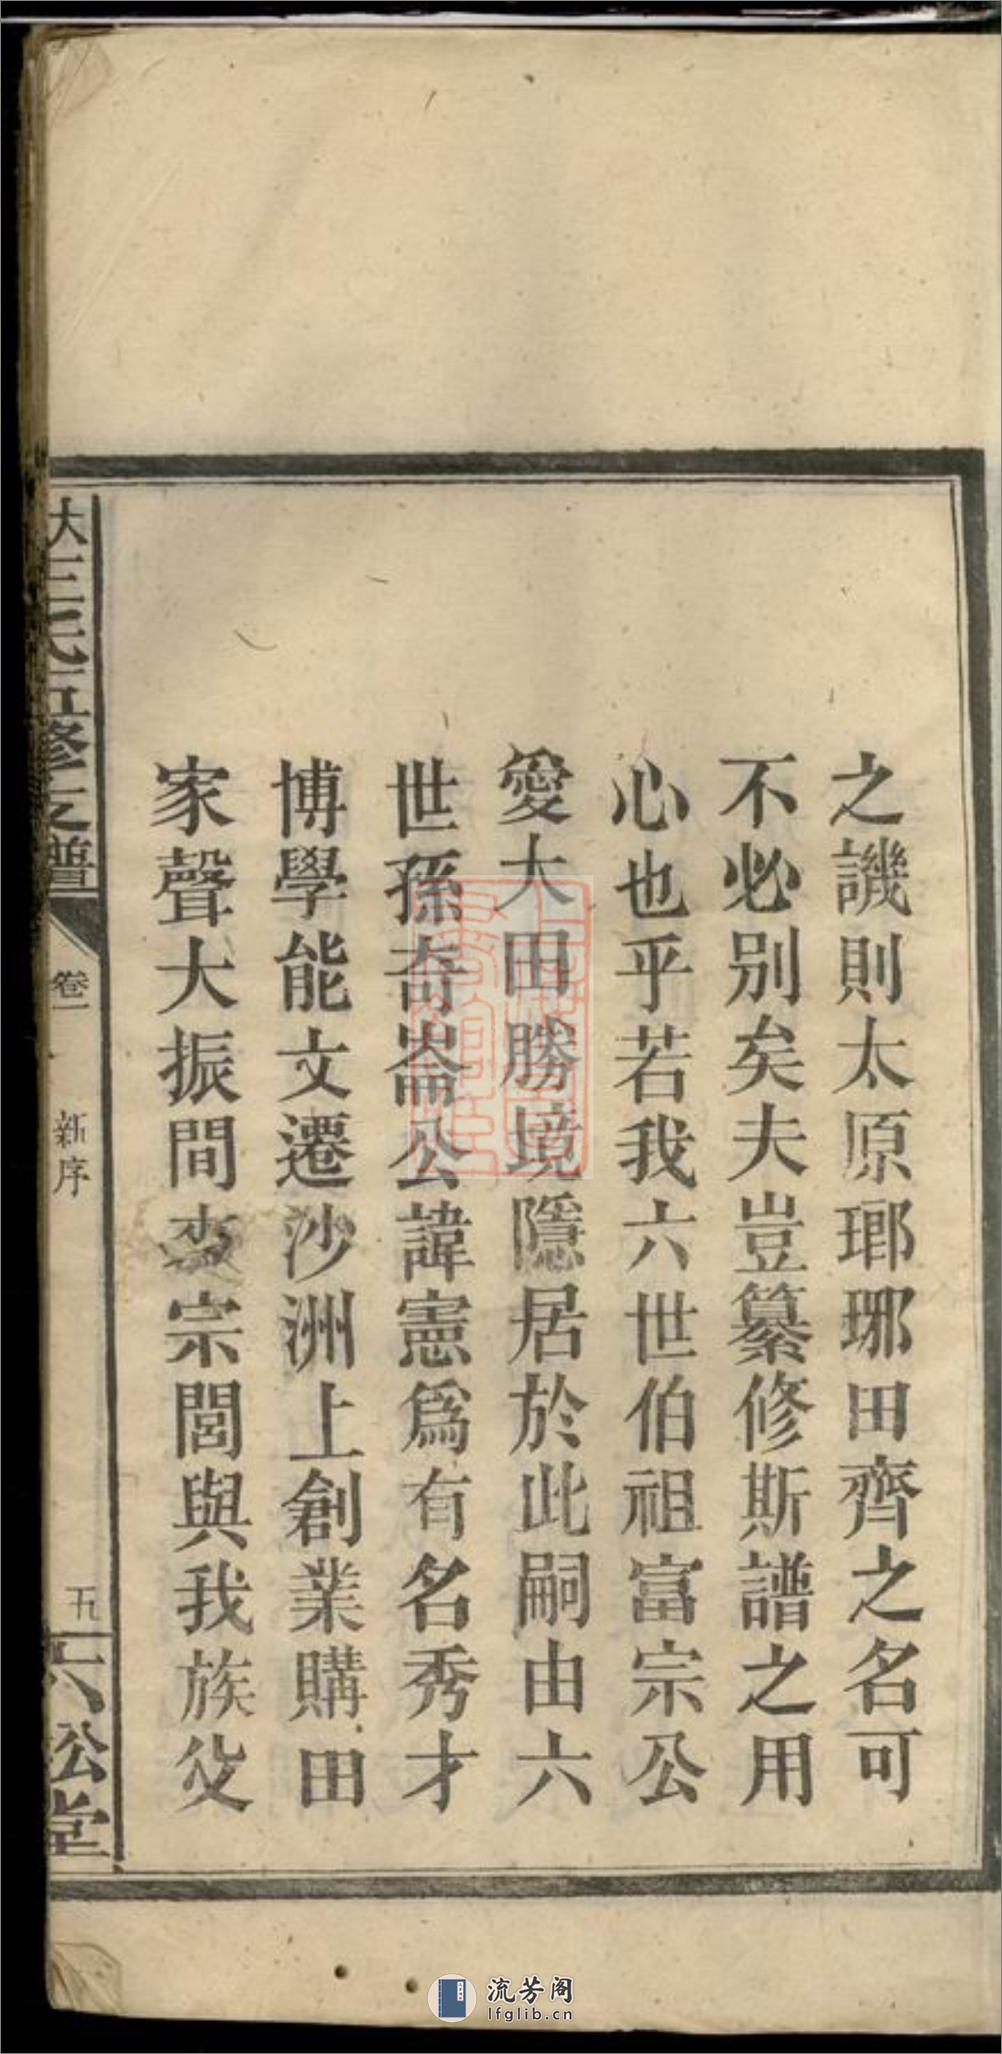 之譏則太原瑯琊田齊之名可
不必別矣夫豈纂修斯譜之用
心也乎若我六世伯祖富宗公
愛大田勝境隱居於此嗣由六
世孫奇崙公諱憲爲有名秀才
博學能文遷沙洲上創業購田
家聲大振間查宗閭與我族殳
王氏五修支譜
卷一
新序
五
六公堂
流芳阁
lfglib.cn